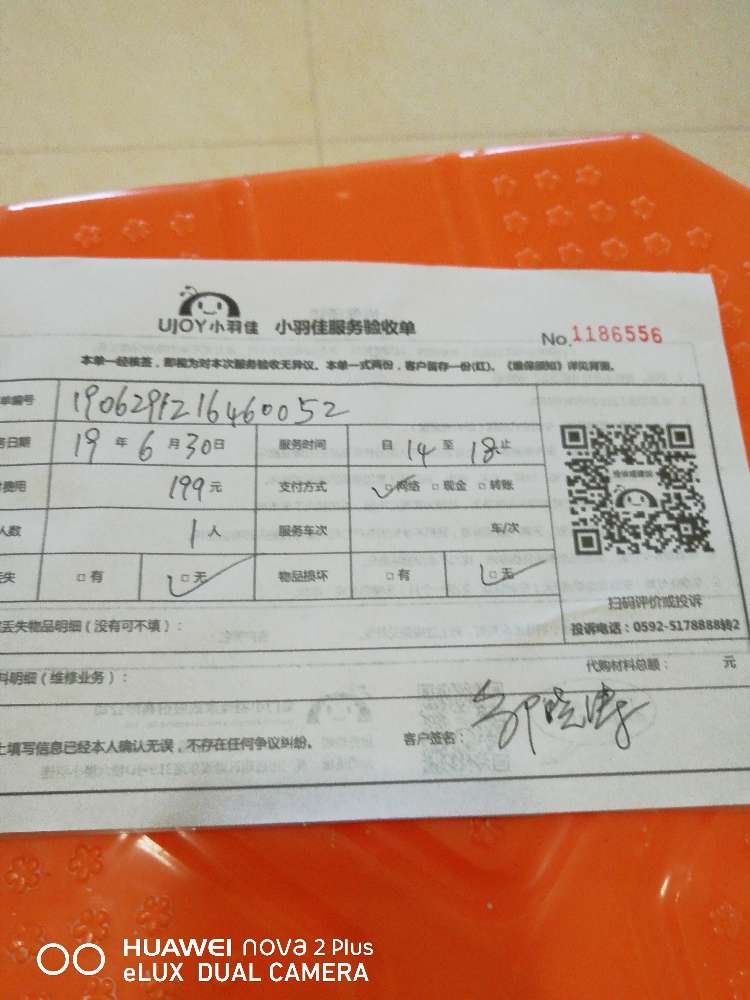 UJOY小羽佳 小羽佳服务验收单 No.1186556
本单一经核签，即视为对本次服务验收无异议。本单一式两份，客户留存一份(红)。《维保须知》详见背面。
单编号 1906291216460052
务日期 19 年 6 月 30 日 服务时间 自 14 至 18 止
费用 199 元 支付方式 □网络 □现金 □转账
人数 1 人 服务车次 车/次
丢失 □有 □无 物品损坏 □有 □无
扫码评价或投诉
投诉电话：0592-5178888转2
丢失物品明细（没有可不填）：
代购材料总额： 元
料明细（维修业务）：
上填写信息已经本人确认无误，不存在任何争议纠纷。 客户签名：
HUAWEI nova 2 Plus
eLUX DUAL CAMERA